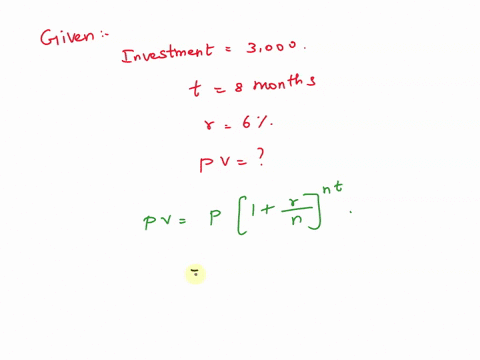 Given:-
Investment = 3,000.
t = 8 months
r = 6%.
PV = ?
PV = P [1 + r/n]^nt.
=